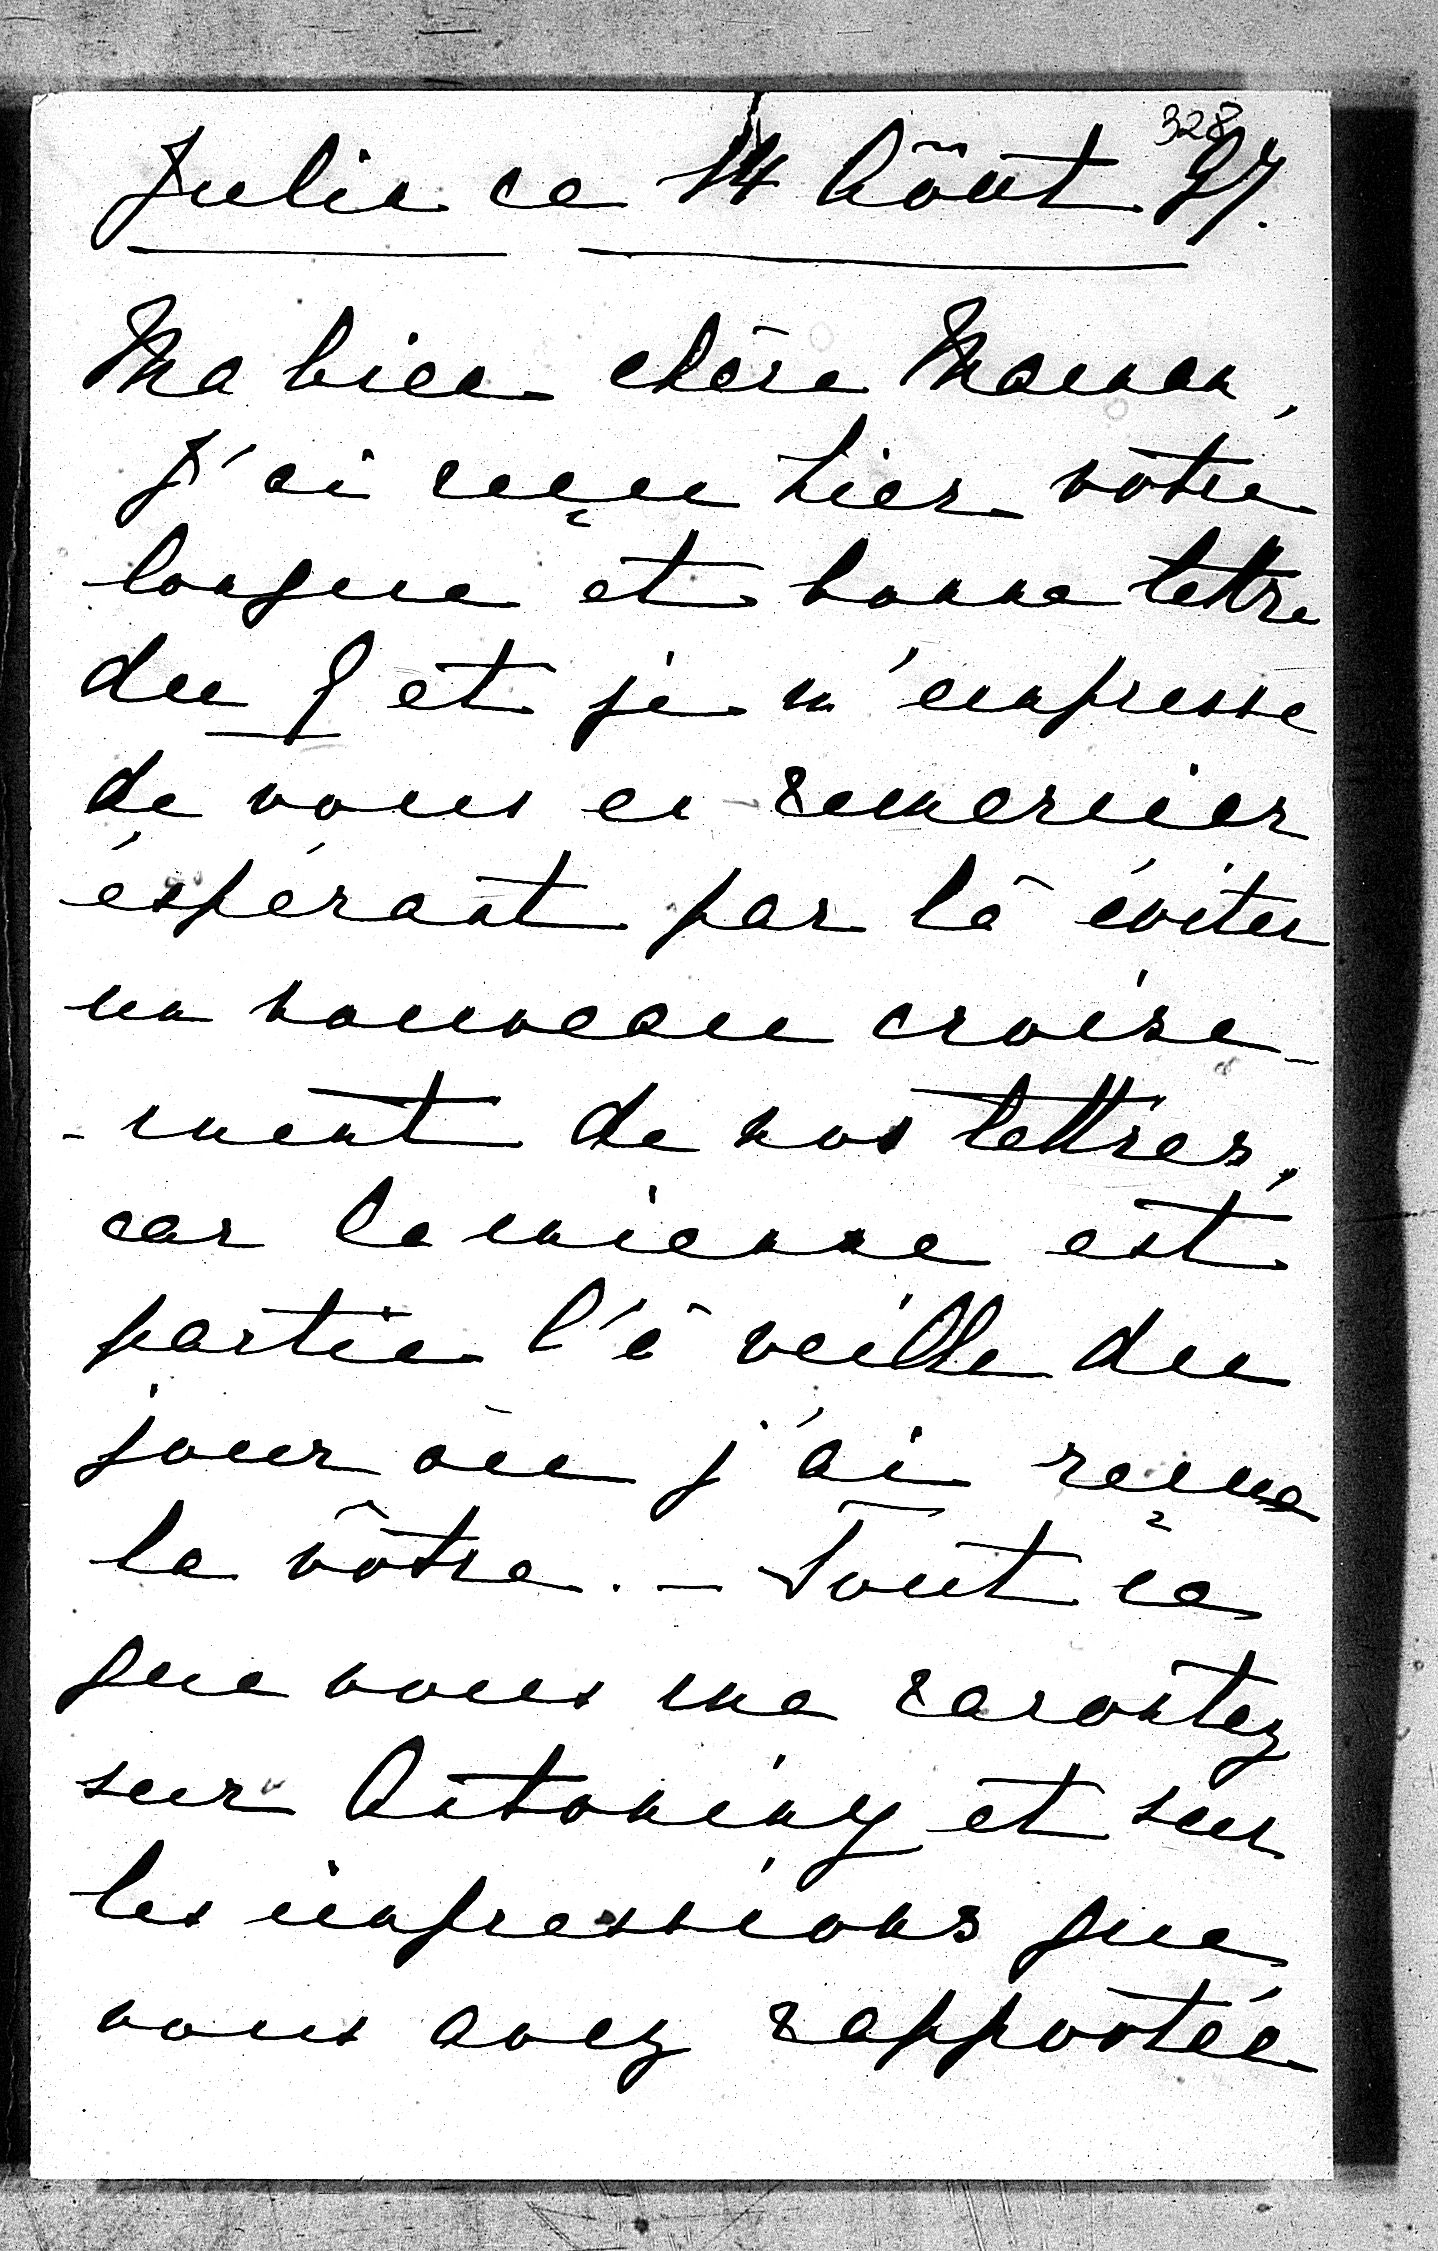 328
Julin ce 14 Aôut 97.
Ma bien chère Maman,
J'ai reçue hier vôtre
longue et bonne lettre
du 9 et je m'empresse
de vous en remercier
éspérant par là éviter
un nouveau croise-
-ment de nos lettres,
car la mienne est
partie l'à veille du
jour où j'ai reçue
la vôtre. - Tout ce
que vous me racontez
sur Antoniny et sur
les impressions que
vous avez rapportée